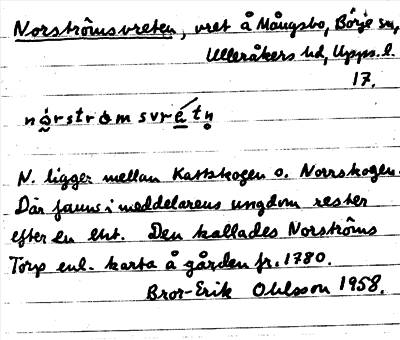 Norströmsvreten, vret å Mångsbo, Börje sn,
Ulleråkers hd, Upps.l.
17.
nórström svré̱tn̥
N. ligger mellan Kattskogen o. Norrskogen.
Där fanns i meddelarens ungdom rester
efter en tht. Den kallades Norströms
Torp enl. karta å gården fr. 1780.
Bror-Erik Ohlsson 1958.